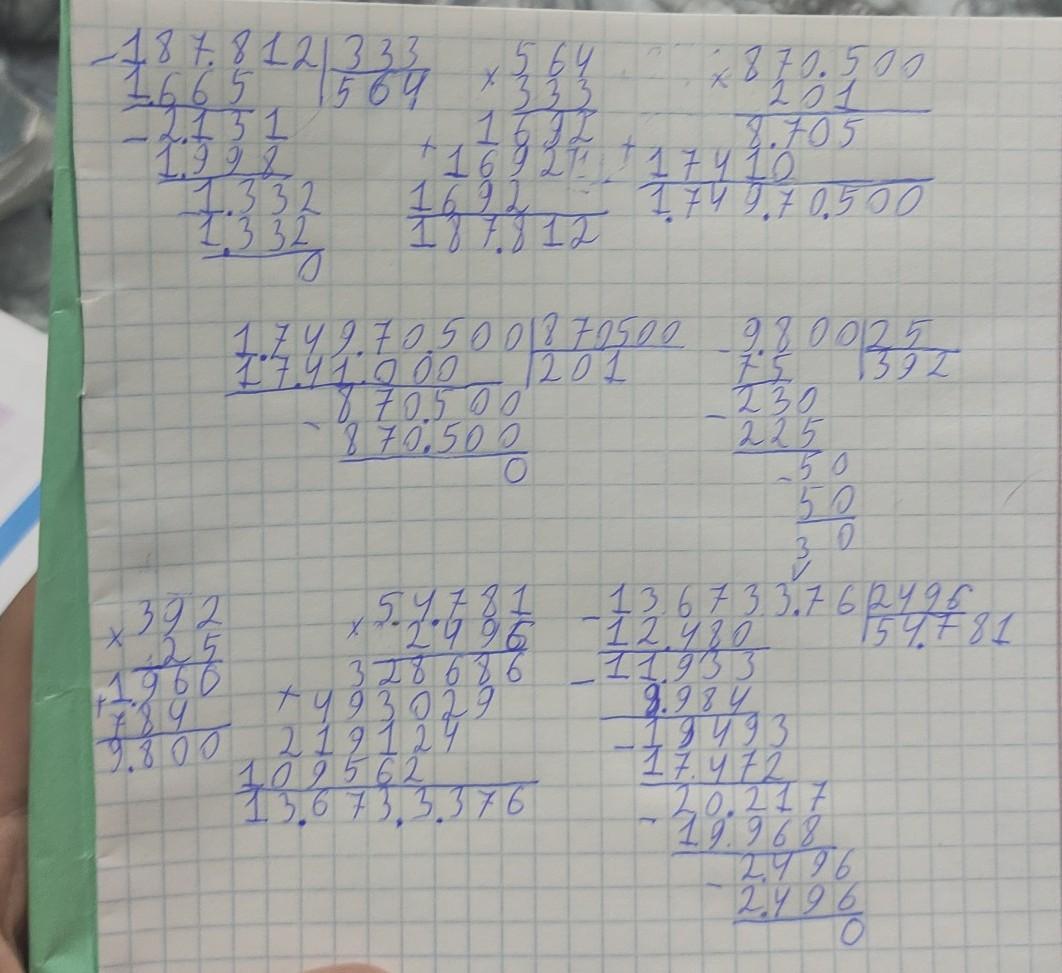 -187.812|333 × 564 × 870.500
1.665 564 333 201
-2.131 1692 8.705
1.998 + 1692 + 17410
-1.332 1692 1.749.70.500
1.332 187.812
0
1.749.70.500|870500 -9.800|25
17.41.000 201 75 392
-870.500 -230
870.500 225
0 -50
50
3 0
×392 × 5.4.781 -13.6733.76|2496
.25 2.496 12.480 54.781
+1.960 328686 -11.933
784 + 493029 9.984
9.800 219124 -19493
109562 17.472
13.673.3.376 -20.217
19.968
-2.496
2.496
0